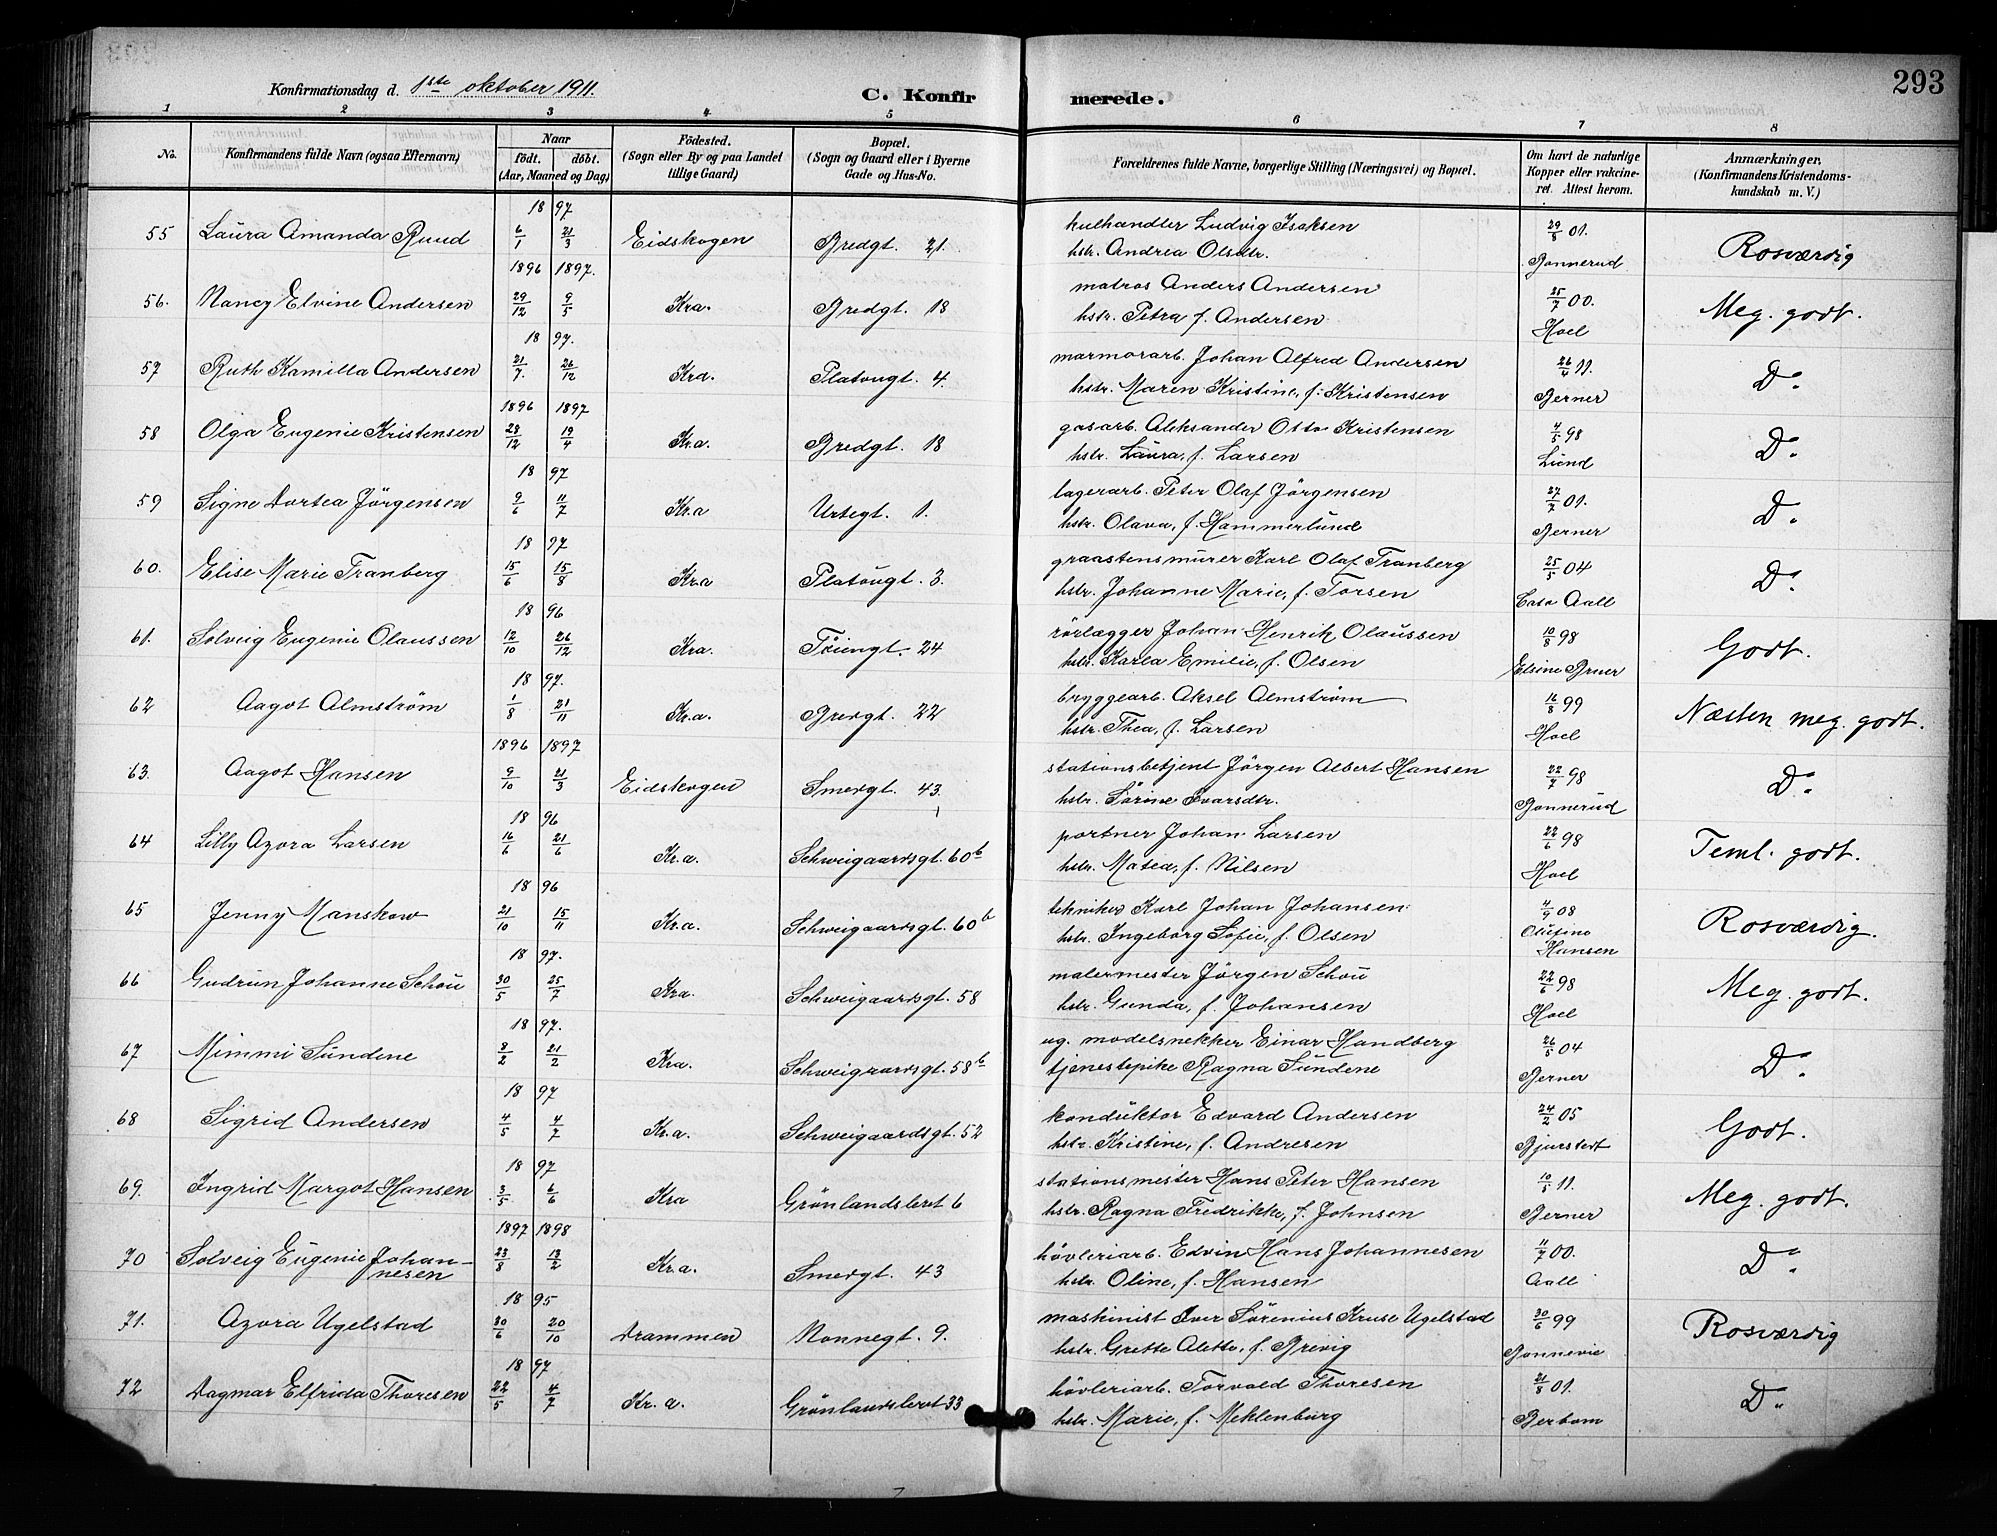 293
Konfirmationsdag d. 1ste oktober 1911.
C. Konfirmerede.
1 2 3 4 5 6 7 8
No.
Konfirmandens fulde Navn (ogsaa Efternavn)
Naar
födt. döbt.
(Aar, Maaned og Dag)
Födested.
(Sogn eller By og paa Landet
tillige Gaard)
Bopæl.
(Sogn og Gaard eller i Byerne
Gade og Hus-No.
Forældrenes fulde Navne, borgerlige Stilling (Næringsvei) og Bopæl.
Om havt de naturlige
Kopper eller vakcine-
ret. Attest herom.
Anmærkninger.
(Konfirmandens Kristendoms-
kundskab m. V.)
18 97
55 Laura Amanda Ruud 6/1 21/3 Eidskogen Bredgt. 21. kulhandler Ludvig Isaksen 29/8 01.
hstr. Andrea Olsdtr. Bonnerud Rosværdig
1896 1897.
56. Nancy Elvine Andersen 29/12 9/5 Kra. Bredgt. 18 matros Anders Andersen 25/7 00.
hstr. Petra f. Andersen Hoel Meg. godt.
18 97.
57 Ruth Kamilla Andersen 21/7. 26/12 Kra. Platougt. 4. marmorarb. Johan Alfred Andersen 26/4 11.
hstr. Maren Kristine, f. Kristensen Berner Do
1896 1897
58 Olga Eugenie Kristensen 28/12 19/4 Kr.a. Bredgt. 18 gasarb. Aleksander Otto Kristensen 4/5 98
hstr. Laura, f. Larsen Lund Do
18 97
59 Signe Dortea Jörgensen 9/6 11/7 Kr.a Urtegt. 1. lagerarb. Peter Olaf Jörgensen 27/7 01.
hstr. Olava, f. Hammerlund Berner Do
18 97
60. Elise Marie Tranberg 15/6 15/8 Kr.a Platougt. 3. graastensmurer Karl Olaf Tranberg 25/5 04
hstr. Johanne Marie, f. Torsen Aall Do
18 96
61. Solveig Eugenie Olaussen 12/10 26/12 Kra. Töiengt. 24 rörlægger Johan Henrik Olaussen 10/8 98
hstr. Karla Emilie, f. Olsen Elsine Godt.
18 97.
62 Aagot Almström 1/8 21/11 Kr.a. Bredgt. 22 bryggearb. Aksel Almström 16/8 99
hstr. Thea, f. Larsen Hoel Næsten meg. godt.
1896 1897
63. Aagot Hansen 9/10 21/3 Eidskogen Smedgt. 43. stationsbetjent Jörgen Albert Hansen 22/7 98
hstr. Sörine Ivarsdtr. Bonnerud Do
18 96
64 Lilly Azora Larsen 16/6 21/6 Kr.a. Schweigaardsgt. 60b portner Johan Larsen 22/6 98
hstr. Matea, f. Nilsen Hoel Teml. godt.
18 96
65 Jenny Manskow 21/10 15/11 Kr.a. Schweigaardsgt. 60b tekniker Karl Johan Johansen 4/9 08
hstr. Ingeborg Sofie, f. Olsen Olefine
Hansen Rosværdig.
18 97.
66 Gudrun Johanne Schou 30/5 25/7 Kra. Schweigaardsgt. 58 malermester Jörgen Schou 22/6 98
hstr. Gunda, f. Johansen Hoel Meg. godt.
18 97.
67 Mimmi Sundene 8/2 21/2 Kra. Schweigaardsgt. 58b ug. modelsnekker Einar Handberg 26/5 04
tjenestepike Ragna Sundene Berner Do
18 97
68 Sigrid Andersen 4/5 4/7 Kr.a. Schweigaardsgt. 52 konduktor Edvard Andersen 24/2 05
hstr. Kristine, f. Andresen Bjurstedt Godt.
18 97
69. Ingrid Margot Hansen 3/5 6/6 Kra Grönlandsleret 6 stationsmester Hans Peter Hansen 10/5 11.
hstr. Ragna Fredrikke, f. Johnsen Berner Meg. godt.
1897 1898
70 Solveig Eugenie Johan-
nesen 23/8 13/2 Kr.a. Smedgt. 43 hövleriarb. Edvin Hans Johannesen 11/7 00.
hstr. Oline, f. Hansen Aall Do
18 95
71. Azora Ugelstad 30/6 20/10 Drammen Nonnegt. 9. maskinist Iver Sörenius Kruse Ugelstad 30/6 99
hstr. Grette Alette, f. Brevig Bonnevie Rosværdig
18 97
72 Dagmar Elfrida Thoresen 22/5 4/7 Kr.a. Grönlandsleret 33 hövleriarb. Torvald Thoresen 21/8 01.
hstr. Marie, f. Meklenburg Berbom Do